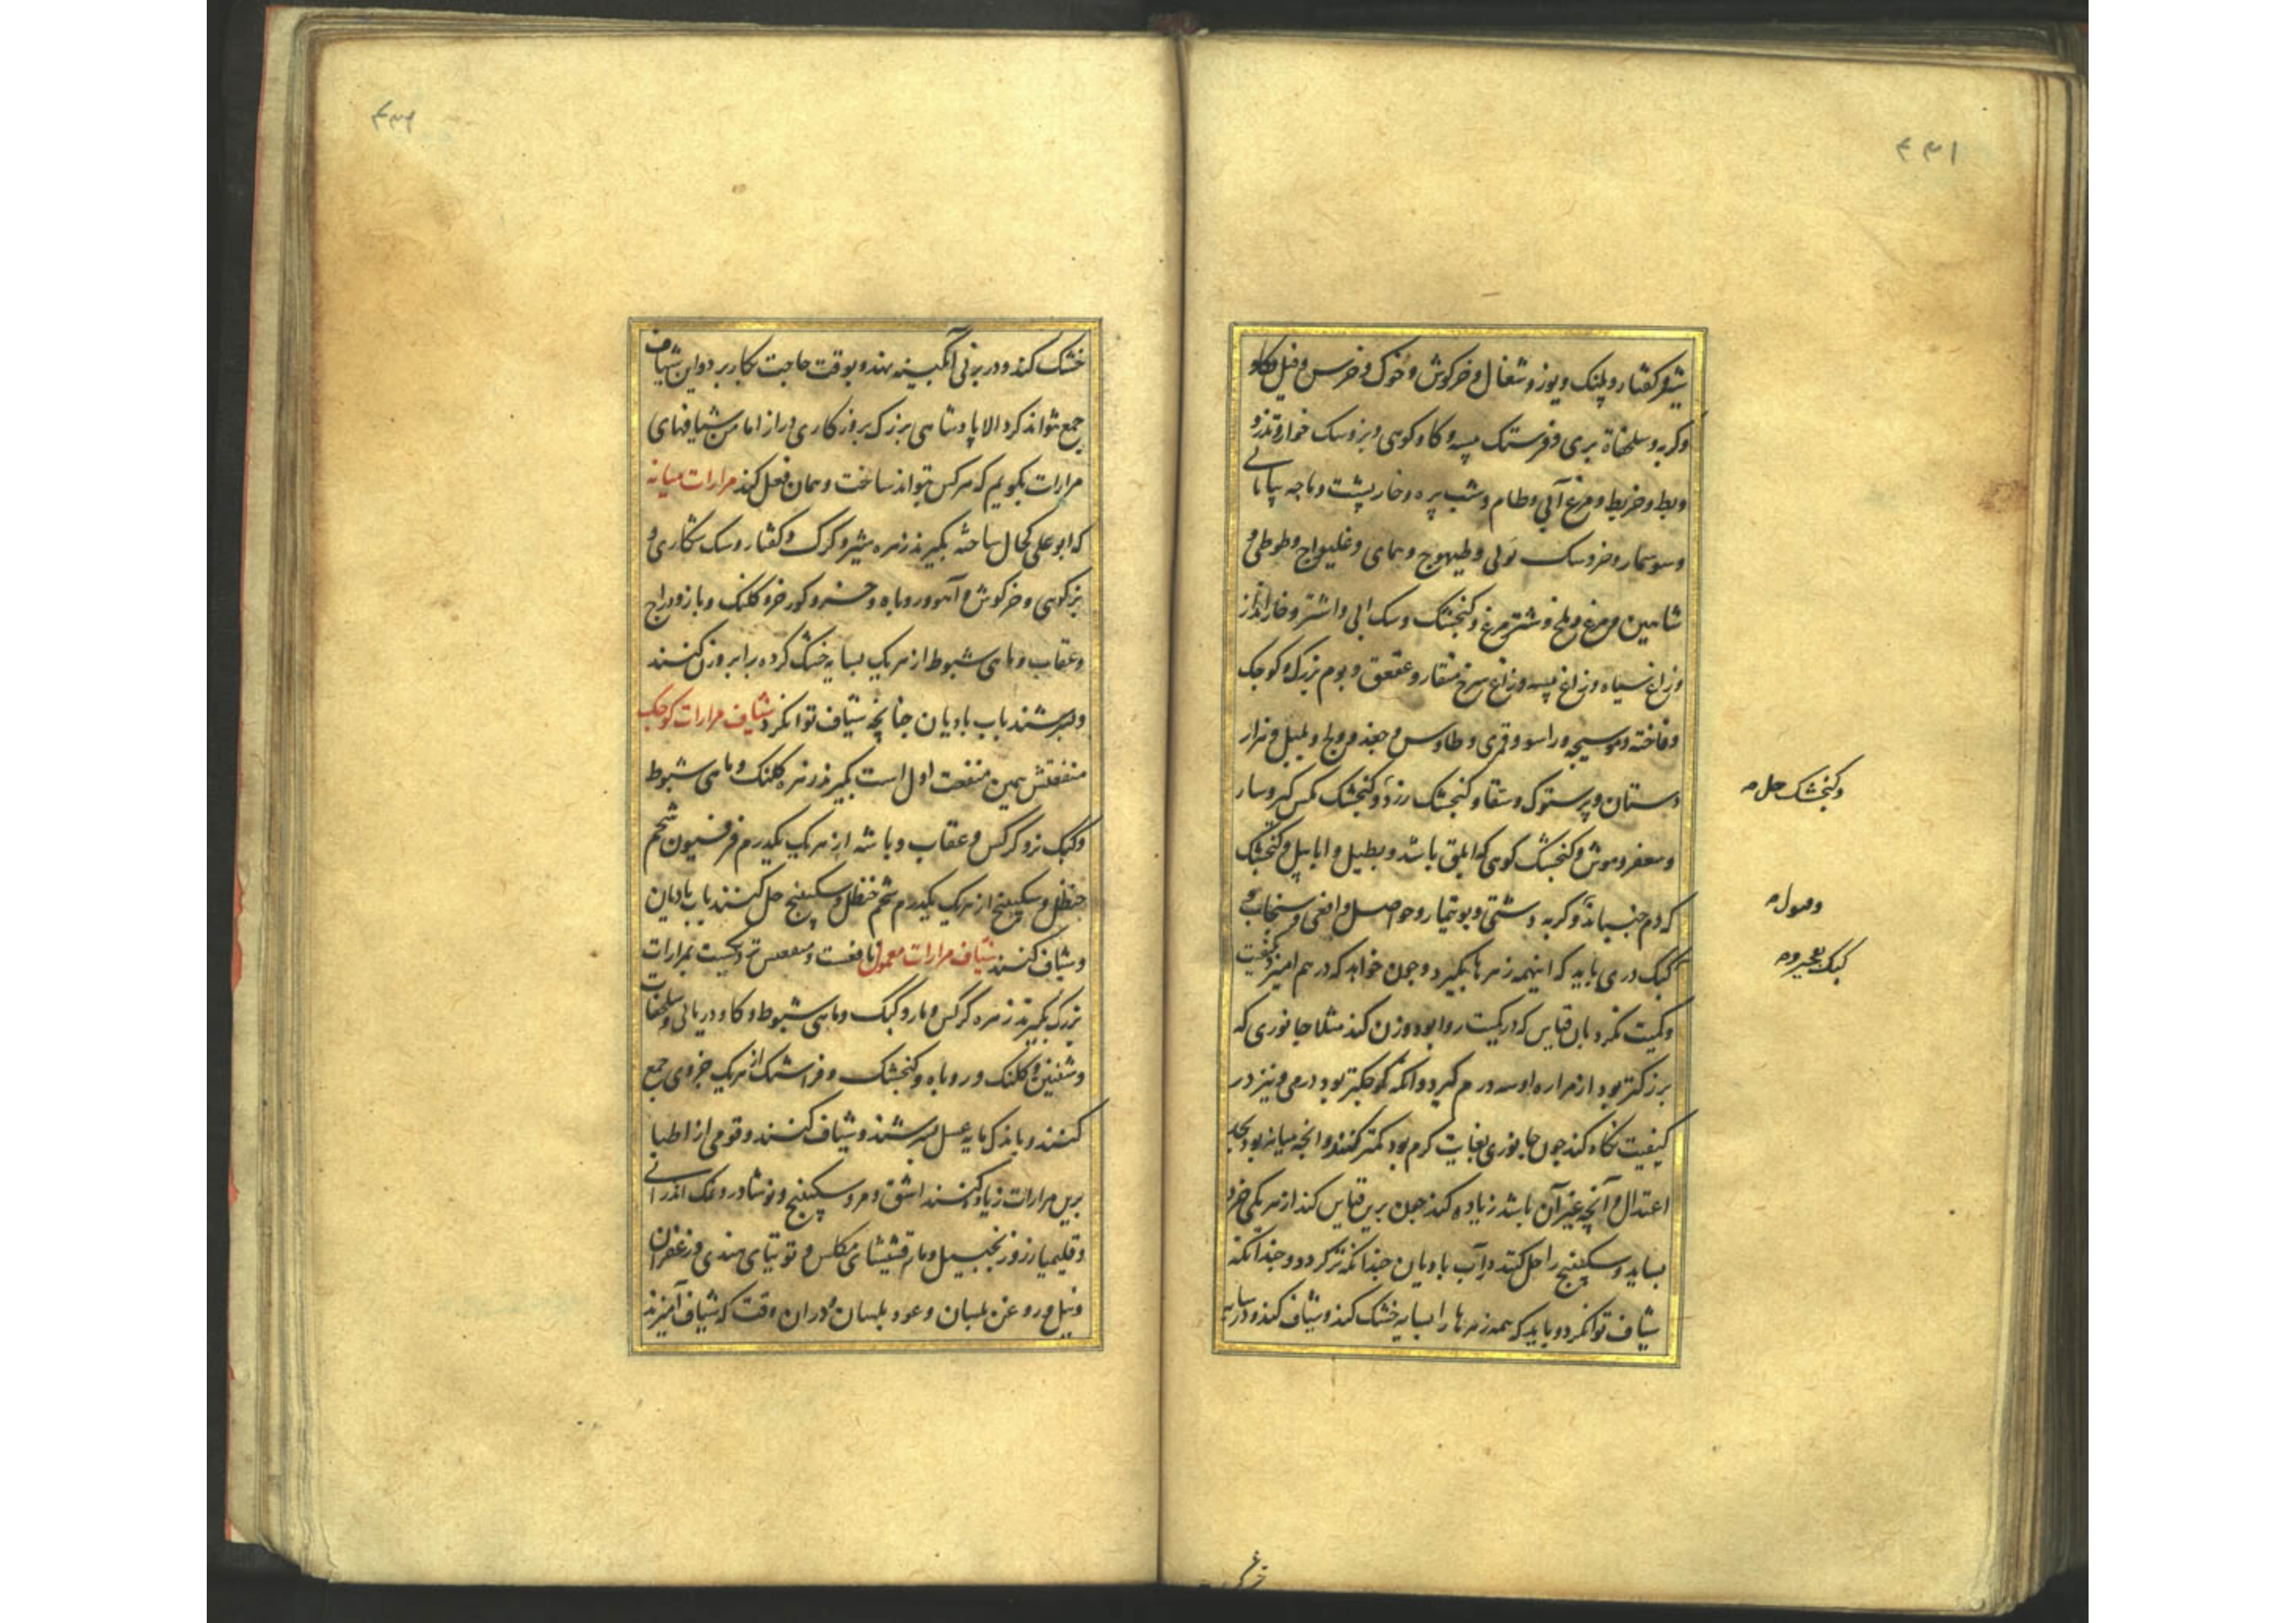 ۴۳۱
شیر و کفتار و پلنک و یوز و شغال و خرکوش و خوک و خرس و فیل و کاو
و کربه و سلحفاة بری و فرستک پیسه و کاو کوهی و بز و سک خوار و تذرو
و بط و خربط و مرغ آبی و طام و شب پره و خار پشت و باجه بیابانی
و سوسمار و خروسک لولی و طیهوج و همای و غلیواج و طوطی و
شاهین و مرغ و ملخ و شترمرغ و کنجشک و سک ابی و اشتر و خارانداز
و زاغ سیاه و زاغ پیسه و زاغ سرخ منقار و عقعق و بوم بزرک و کوجک
و فاخته و موسیجه و راسو و قمری و طاوس و جغد و بلبل و هزار
دستان و پرستوک و سقا و کنجشک زرد و کنجشک مکس کیر و سار
وکنجشک حل م
و صعفر و موش و کنجشک کوهی که ابلق باشد و بطبل و ابابیل و کنجشک
که دم جنباند و کربه دشتی و بوتیمار و حواصل و افعی و سنجاب و
وصول م
کبک دری باید که اینهمه زهرها بکیرد و جون خواهد که در هم امیزد کیفیت
کبک
و کمیت نکرد بان قیاس که در کمیت روا بود وزن کند مثلا جانوری که
بزرکتر بود از مراره او سه درم کیرد و انکه کوجکتر بود درمی و نیز در
کیفیت نکاه کند جون جانوری بغایت کرم بود کمتر کنند و انچه میانه بود بحد
اعتدال و آنچه غیر آن باشد زیاده کند جون برین قیاس کند از هر یکی جزو
بساید و سکبینج را حل کند در آب بادیان جندانکه تر کردد و جندانکه
شیاف توانکرد و باید که همه زهرها را بسایه خشک کند و شیاف کند و در سایه
۴۳۲
خشک کند و در برنی آبکینه نهند و بوقت حاجت بکار برد و این شیاف
جمع نتواند کرد الا پادشاهی بزرک بروزکاری دراز اما من شیافهای
مرارات بکویم که هرکس بتواند ساخت و همان فعل کند مرارات میانه
که ابو علی کحال ساخته بکیرند زهره شیر و کرک و کفتار و سک شکاری و
بز کوهی و خرکوش و آهو و روباه و خرس و کورخر و کلنک و باز و دراج
و عقاب و ماهی شبوط از هر یک بسایه خشک کرده برابر وزن کنند
و بسرشند باب بادیان جنانچه شیاف توانکرد شیاف مرارات کوجک
منفعتش همین منفعت اول است بکیرند زهره کلنک و ماهی شبوط
و کبک نر و کرکس و عقاب و باشه از هر یک یکدرم فرفیون شحم
حنظل و سکبینج از هر یک یکدرم شحم حنظل و سکبینج حل کنند باب بادیان
و شیاف کنند شیاف مرارات معمول نافعست و منفعتش نزدیکست بمرارات
بزرک بکیرند زهره کرکس و مار و کبک و ماهی شبوط و کاو دریائی و سلحفات
و شفنین و کلنک و روباه و کنجشک و فراشتک از هر یک جزوی جمع
کنند و باندک مایه عسل بسرشند و شیاف کنند و قومی از اطبا
برین مرارات زیاد کنند اشق و مر و سکبینج و نوشادر و نمک اندرانی
و قلیمیا زر و زنجبیل و مارقشیشای مکلس و توتیای هندی و زعفران
و نیل و روغن بلسان و عود بلسان و دران وقت که شیاف آمیزند